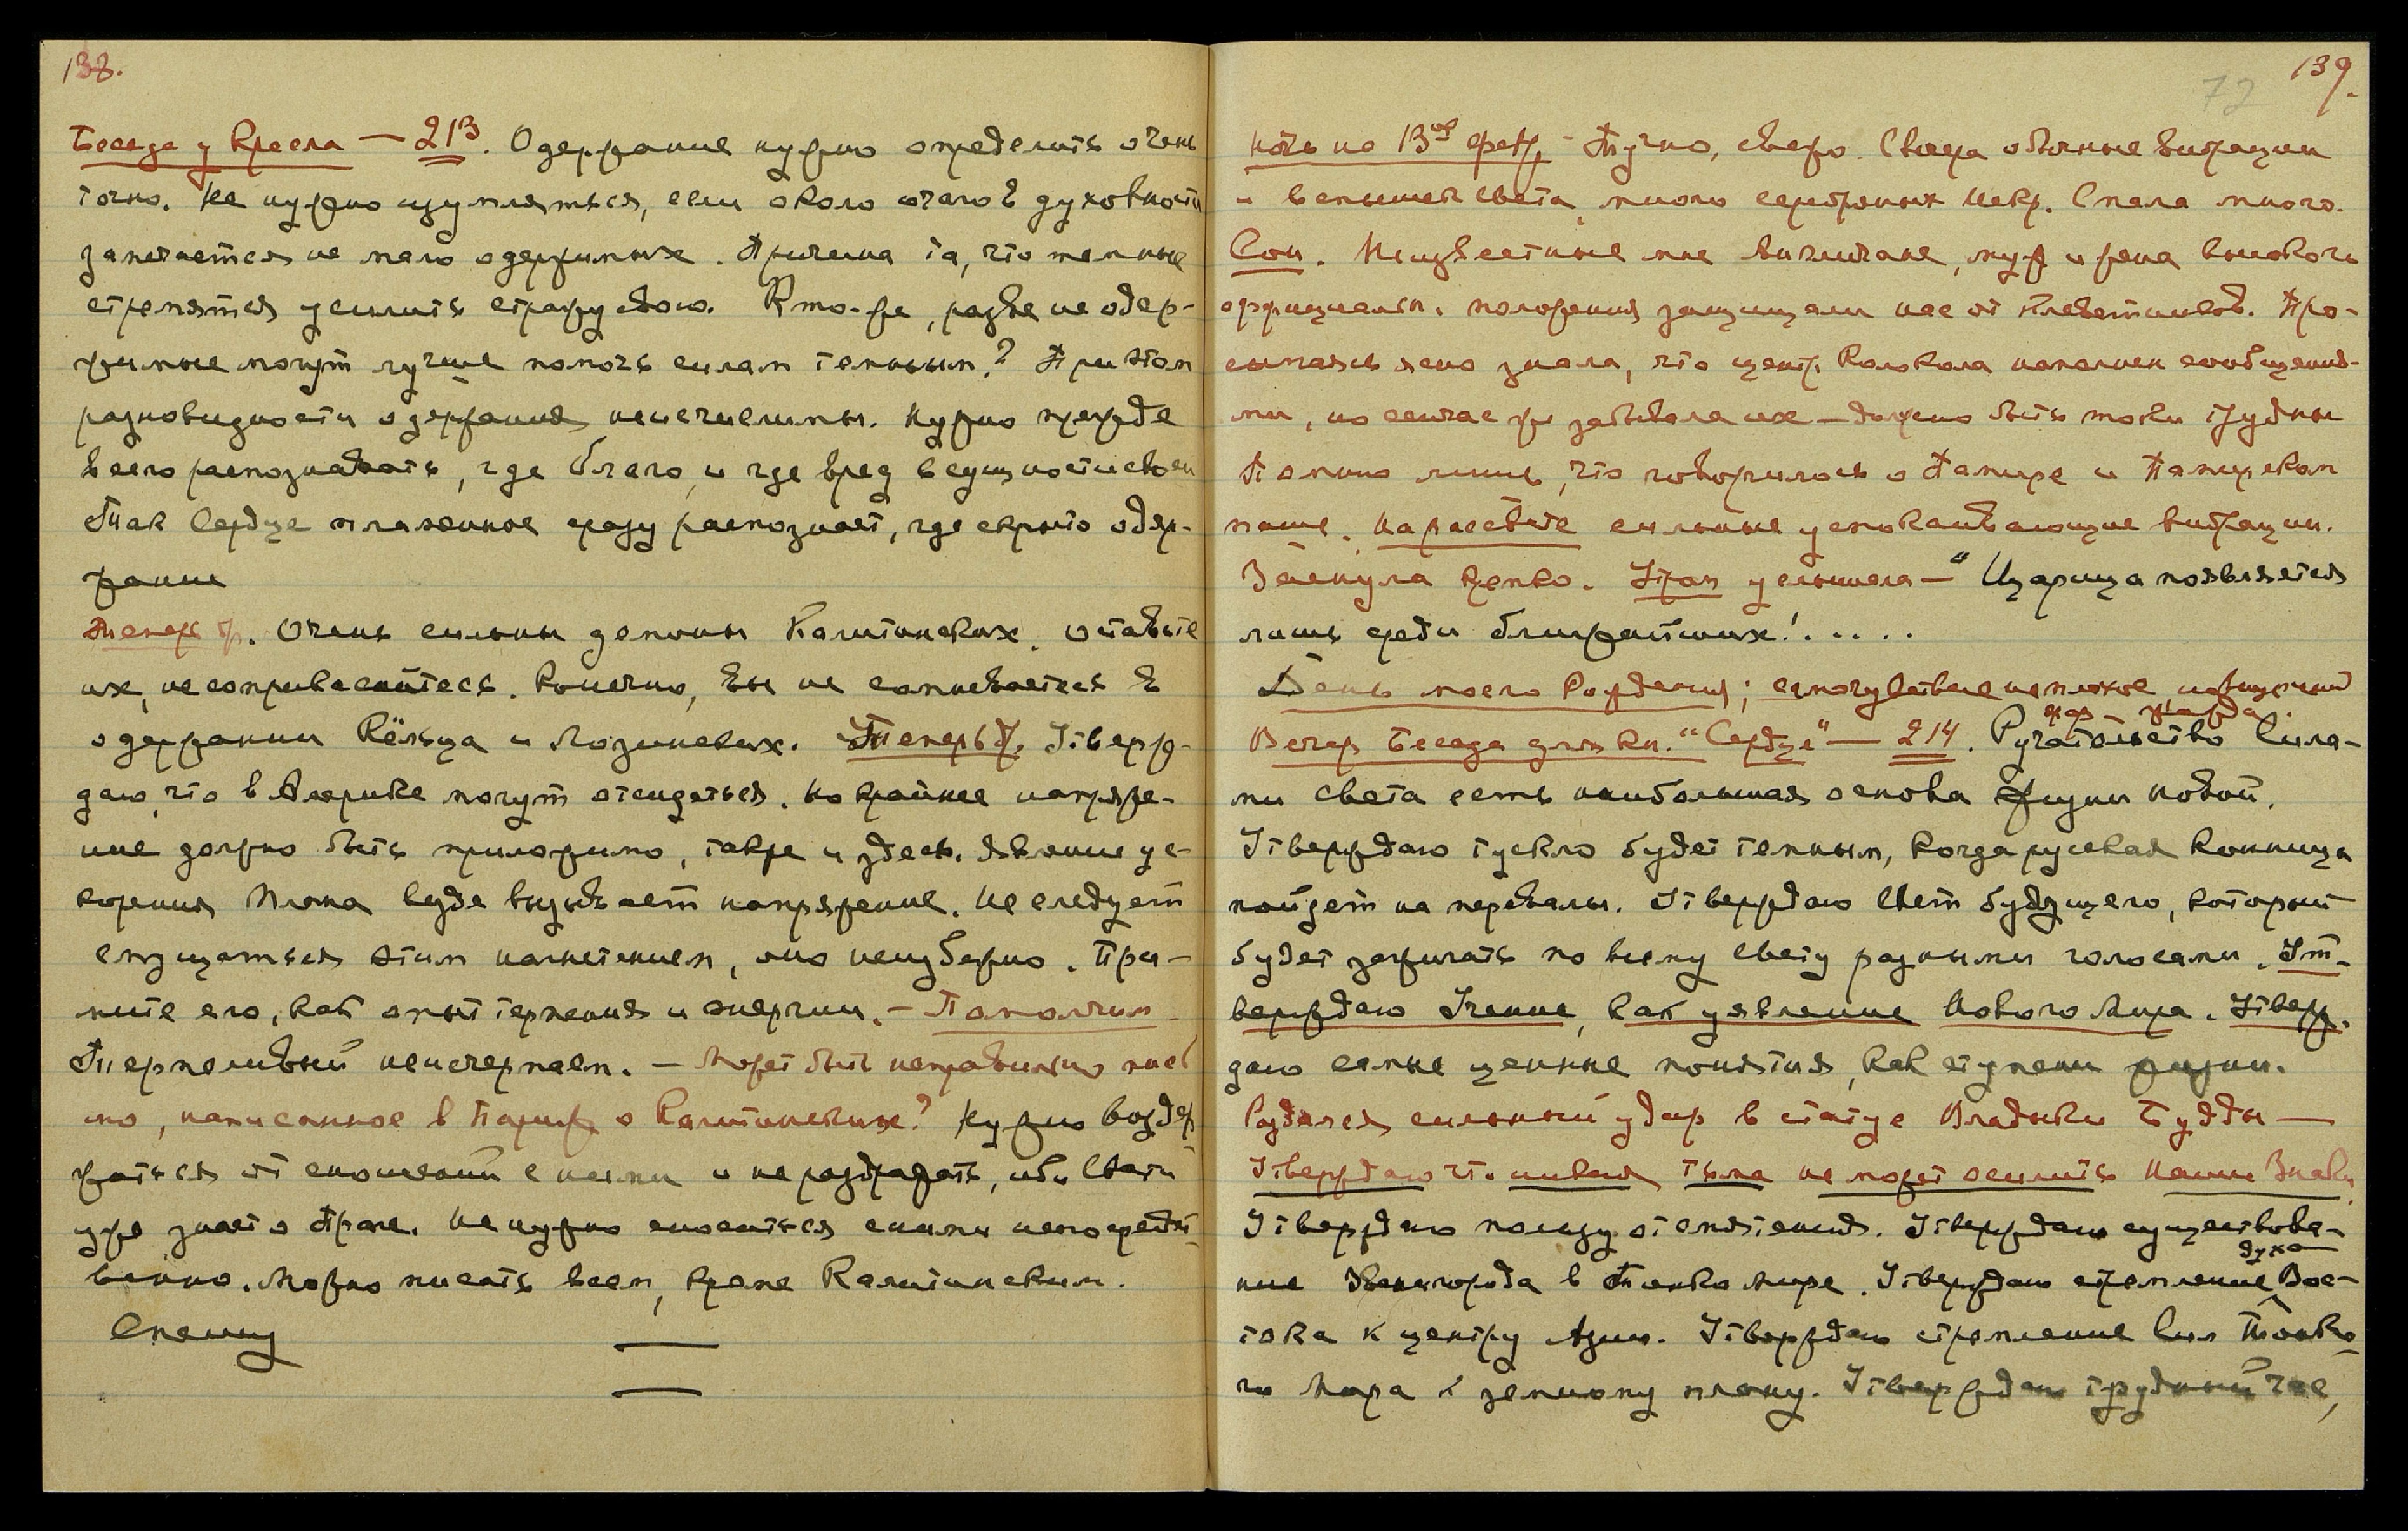 138.
Беседа у Кресла — 213. Одержание нужно определить очень
точно. Не нужно изумляться, если около очагов духовности
замечается не мало одержимых. Причина та, что темные
стремятся усилить стражу свою. Кто-же, разве не одер-
жимые могут лучше помочь силам темным? При этом
разновидности одержания неисчислимы. Нужно прежде
всего распознавать, где благо, и где вред в сущности своей
Так Сердце пламенное сразу распознает, где скрыто одер-
жание
Теперь др. Очень сильны демоны Калитинских. Оставьте
их, не соприкасайтесь. Конечно, вы не сомневаетесь в
одержании Кёльца и Лозинских. Теперь др. Утверж-
даю, что в Америке могут отсидеться. Но крайнее напряже-
ние должно быть приложимо, также и здесь. Явление ус-
корения Плана везде вызывает напряжение. Не следует
смущаться этим нагнетением, оно неизбежно. При-
мите его, как опыт терпения и энергии. — Помолчим
Терпеливый неисчерпаем. — Может быть неправильно пись
мо, написанное в Париж о Калитинских? Нужно воздер
жаться от сношений с ними и не раздражать, ибо Святой
уже знает о Праге. Не нужно сноситься с ними непосредст-
венно. Можно писать всем, кроме Калитинским.
Спешу
139.
72
Ночь на 13ое февр. — Тучно, свежо. Свыра обычные вибрации
и вспышек света, много серебряных искр. Спала много.
Сон. Неизвестные мне Англичане, муж и жена высокого
оффициальн. положения защищали нас от клеветников. Про-
сыпаясь ясно знала, что центр Колокола наполнен сообщения-
ми, но сейчас же забывала их — должно быть токи трудны
Помню лишь, что говорилось о Памире и Памирском
. На рассвете сильные успокаивающие вибрации.
Заснула крепко. Утром услышала — "Царица появляется
лишь среди ближайших! . . . . .
День моего Рождения; самочувствие неплохое,
Вечер Беседа для кн. "Сердце" — 214. Ручательство Сила-
ми Света есть наибольшая основа Жизни новой.
Утверждаю тускло будет темным, когда русская конница
пойдет на перевалы. Утверждаю Свет будущего, который
будет зажигать по всему свету разными голосами. Ут-
верждаю Учение, как уявление Нового Мира. Утверж-
даю самые ценные понятия, как ступени жизни.
Раздался сильный удар в статуе Владыки Будды —
Утверждаю чт. никая тьма не может осилить Наши Знаки
Утверждаю пользу отемятения. Утверждаю существова-
ние Звенигорода в Тонком мире. Утверждаю стремление духа Вос-
тока к центру Азии. Утверждаю стремление Сил Тонко-
го Мира к земному плану. Утверждаю трудный час,